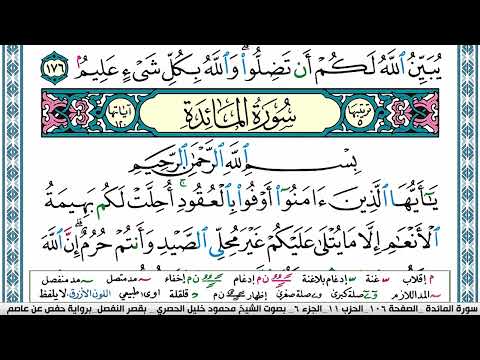 يُبَيِّنُ ٱللَّهُ لَكُمۡ أَن تَضِلُّواْۗ وَٱللَّهُ بِكُلِّ شَيۡءٍ عَلِيمُۢ ١٧٦
ترتيبها ٥ سُورَةُ المَائدَةِ آياتها ١٢٠
بِسۡمِ ٱللَّهِ ٱلرَّحۡمَٰنِ ٱلرَّحِيمِ
يَٰٓأَيُّهَا ٱلَّذِينَ ءَامَنُوٓاْ أَوۡفُواْ بِٱلۡعُقُودِۚ أُحِلَّتۡ لَكُم بَهِيمَةُ
ٱلۡأَنۡعَٰمِ إِلَّا مَا يُتۡلَىٰ عَلَيۡكُمۡ غَيۡرَ مُحِلِّي ٱلصَّيۡدِ وَأَنتُمۡ حُرُمٌۗ إِنَّ ٱللَّهَ
م إقلاب س غنة س إدغام بلاغنة ن م إدغام ن م إخفاء مد متصل مد منفصل
المد اللازم صلة كبرى و صلة صغرى إظهار ن م قلقلة اوى طبيعي اللون الأزرق لا يلفظ
سورة المائدة _ الصفحة ١٠٦ _ الحزب ١١ _ الجزء ٦ _ بصوت الشيخ محمود خليل الحصري _ بقصر النفصل _ برواية حفص عن عاصم